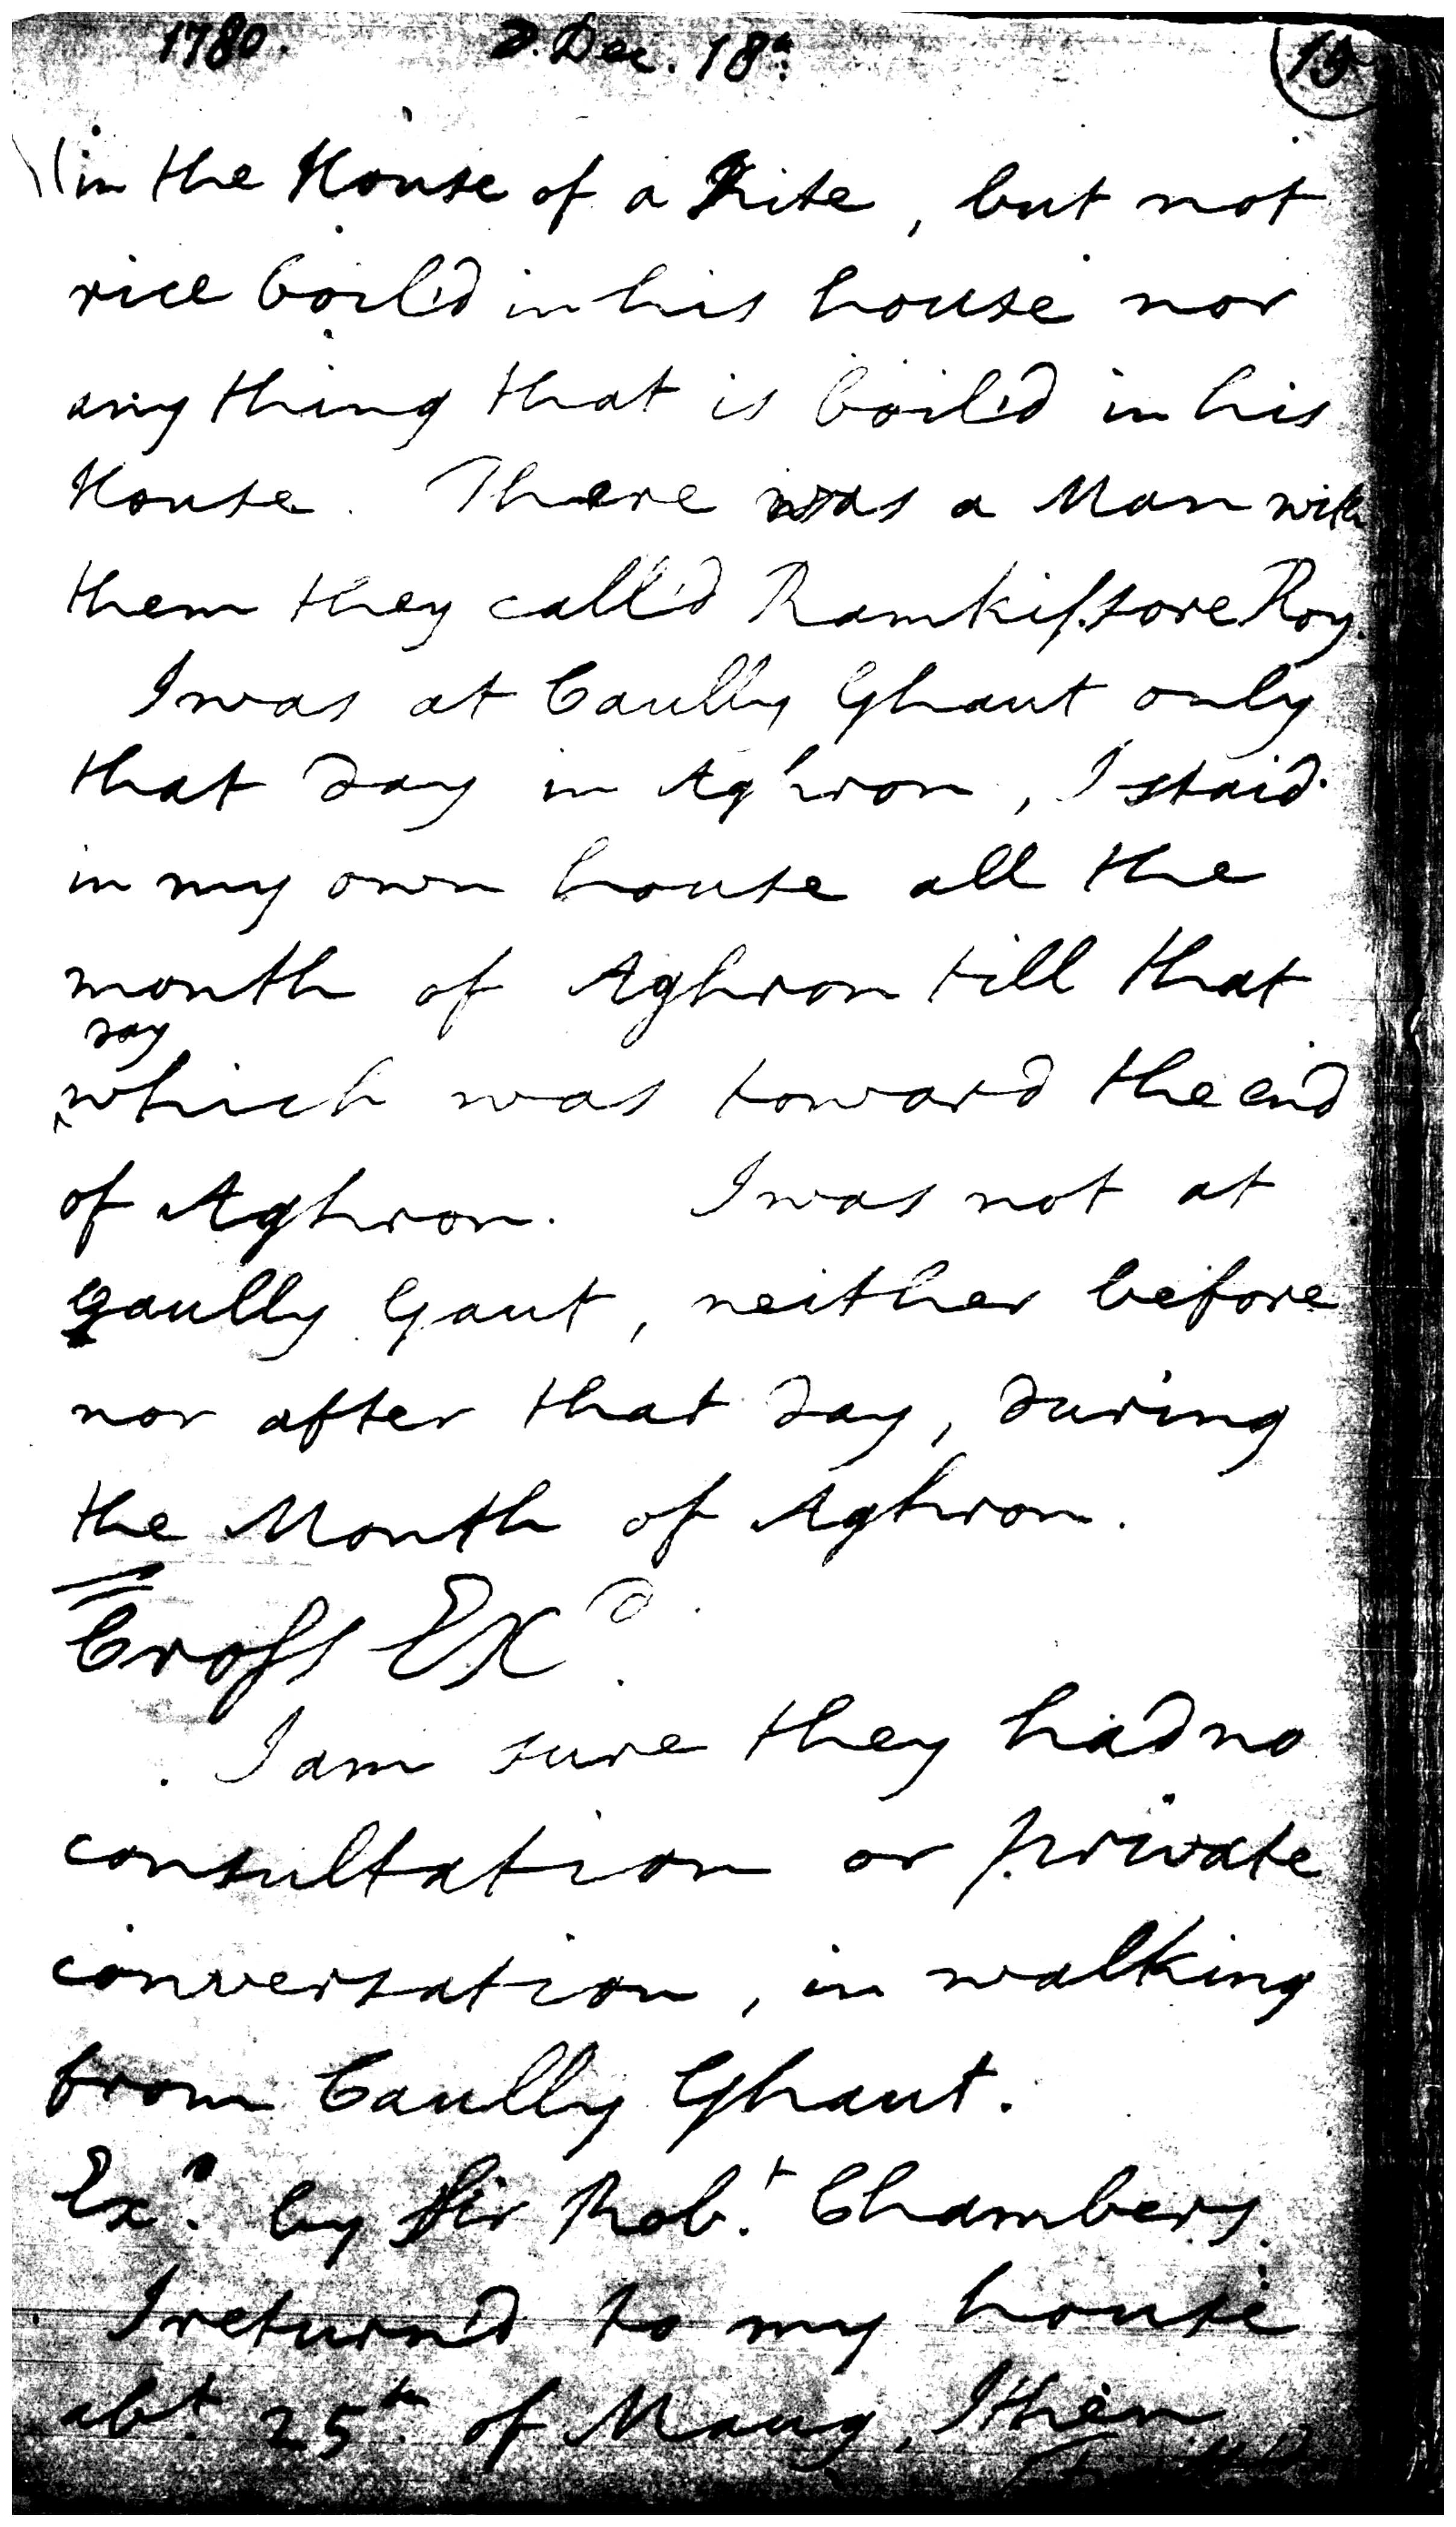 1780. D. Dec. 18th. 15
in the House of a Kite, but not
rice boil'd in his house nor
any thing that is boil'd in his
House. There was a Man with
them they call'd Ramkissore Roy.
I was at Caully Ghaut only
that day in Aghron, I staid
in my own house all the
month of Aghron till that
day
which was toward the end
of Aghron. I was not at
Caully Gaut, neither before
nor after that day, during
the Month of Aghron.
Cross Exd.
I am sure they had no
consultation or private
conversation, in walking
from Caully Ghaut.
Exd. by Sir Robt. Chambers.
I return'd to my house
abt. 25th. of Maug, I then